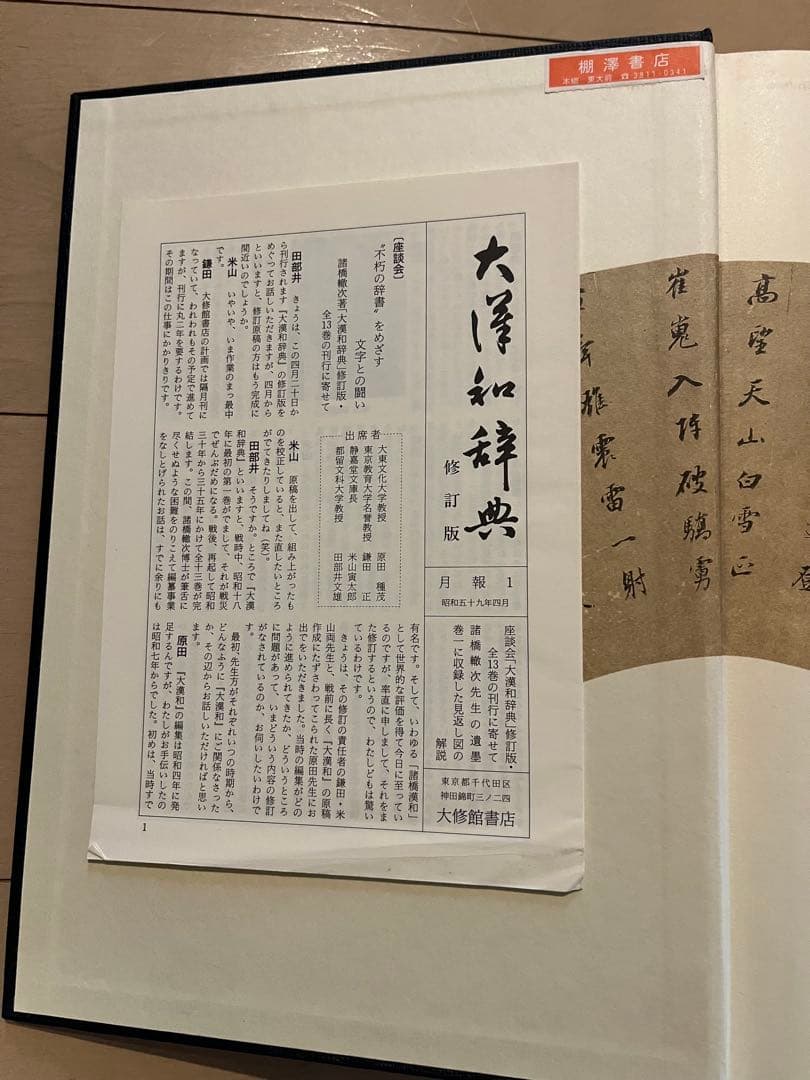 棚澤書店
本郷 東大前 ☎3811-0341
大漢和辞典
修訂版
月報 1
昭和五十九年四月
座談会「大漢和辞典」修訂版・
全13巻の刊行に寄せて
諸橋轍次先生の遺墨
巻一に収録した見返し図の
解説
東京都千代田区
神田錦町三ノ二四
大修館書店
〔座談会〕
“不朽の辞書”をめざす
文字との闘い
諸橋轍次著「大漢和辞典」修訂版・
全13巻の刊行に寄せて
出席者
大東文化大学教授 原田 種茂
東京教育大学名誉教授 鎌田 正
静嘉堂文庫長 米山寅太郎
都留文科大学教授 田部井文雄
田部井 きょうは、この四月二十日か
ら刊行されます『大漢和辞典』の修訂版を
めぐってお話しいただきますが、四月から
といいますと、修訂原稿の方はもう完成に
間近いのでしょうか。
米山 いやいや、いま作業のまっ最中
です。
鎌田 大修館書店の計画では隔月刊に
なっていて、われわれもその予定で進めて
ますが、刊行に丸二年を要するわけです。
その期間はこの仕事にかかりきりです。
米山 原稿を出して、組み上がったも
のを校正していると、また直したいところ
がでてきたりしましてね(笑)。
田部井 そうですか。ところで『大漢
和辞典』といいますと、戦時中、昭和十八
年に最初の第一巻がでまして、それが戦災
でぜんぶだめになる。戦後、再起して昭和
三十年から三十五年にかけて全十三巻が完
結します。この間、諸橋轍次博士が筆舌に
尽くせぬような困難をのりこえて編纂事業
をなしとげられたお話は、すでに余りにも
有名です。そして、いわゆる「諸橋漢和」
として世界的な評価を得て今日に至ってい
るのですが、率直に申しまして、それをま
た修訂するというので、わたしどもは驚い
ているわけです。
きょうは、その修訂の責任者の鎌田・米
山両先生と、戦前に長く『大漢和』の原稿
作成にたずさわってこられた原田先生にお
出でをいただきました。当時の編集がどの
ように進められてきたか、どういうところ
に問題があって、いまどういう内容の修訂
がなされているのか、お伺いしたいわけで
す。
最初、先生方がそれぞれいつの時期から、
どんなふうに『大漢和』にご関係なさった
か、その辺からお話しいただければと思い
ます。
原田 『大漢和』の編集は昭和四年に発
足するんですが、わたしがお手伝いしたの
は昭和七年からでした。初めは、当時すで
1
高望天山白雪正
崔嵬入陣破驕虜
雄震雷一射
登